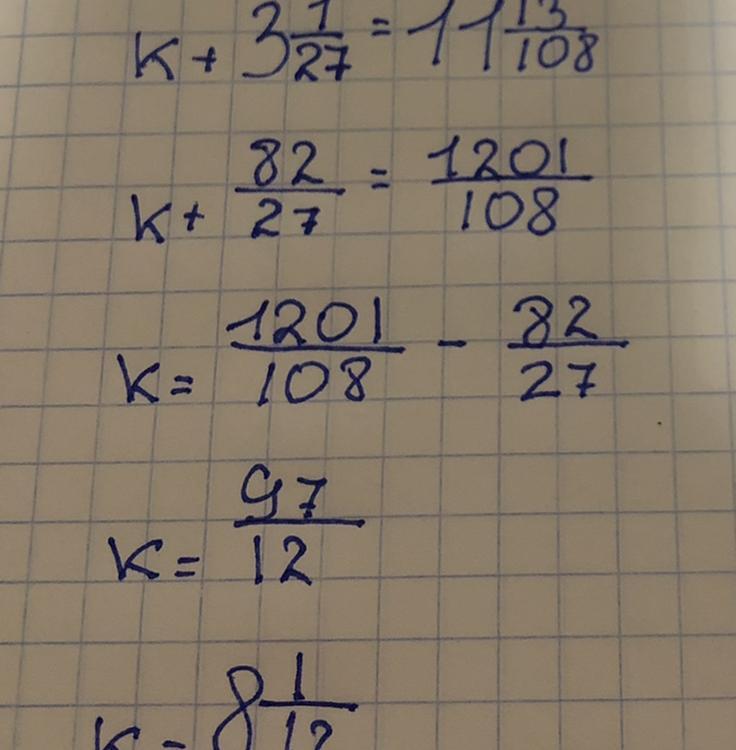 K + 3 1/27 = 11 13/108
K + 82/27 = 1201/108
K = 1201/108 - 82/27
K = 97/12
K = 8 1/12